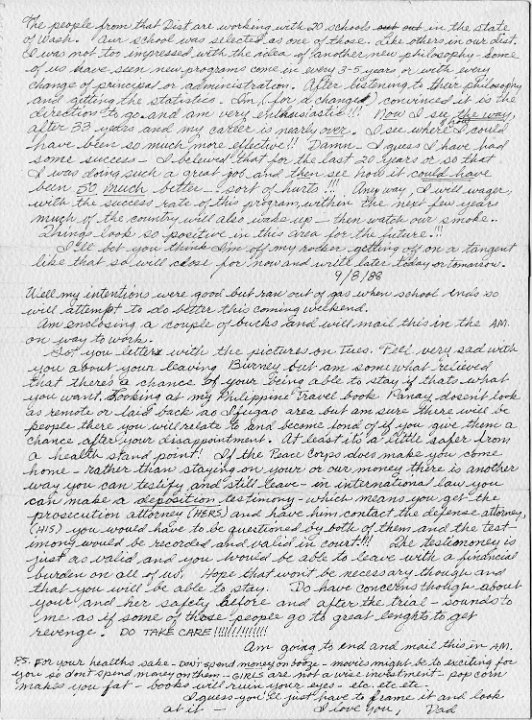 The people from that Dist are working with 20 schools in the state
of Wash. Our school was selected as one of those. Like others in our dist.
I was not too impressed with the idea of another new philosophy - some
of us have seen new programs come in every 3-5 years or with every
change of principal or administration. After listening to their philosophy
and getting the statistics. I'm (for a change) convinced it is the
direction to go and am very enthusiastic!!! Now I see the way,
after 33 years and my career is nearly over. I see where I could
have been so much more effective!! Damn - I guess I have had
some success - I believed that for the last 20 years or so that
I was doing such a great job and then see how it could have
been so much better - sort of hurts!!! Any way, I will wager,
with the success rate of this program, within the next few years
much of the country will also wake up - then watch our smoke.
Things look so positive in this area for the future!!!
I'll bet you think I'm off my rocker getting off on a tangent
like that so will close for now and write later today or tomorrow.
9/8/88
Well my intentions were good but ran out of gas when school ends so
will attempt to do better this coming weekend.
Am enclosing a couple of bucks and will mail this in the AM.
on way to work.
Got you letters with the pictures on Tues. Feel very sad with
you about your leaving Burney but am somewhat relieved
that there's a chance of your being able to stay if thats what
you want. Looking at my Philippine Travel book Panay doesn't look
as remote or laid back as Ifugao area but am sure there will be
people there you will relate to and become fond of if you give them a
chance after your disappointment. At least it's a little safer from
a health stand point! If the Peace Corps does make you come
home - rather than staying on your or our money there is another
way you can testify and still leave - in international law you
can make a deposition testimony - which means you get the
prosecution attorney (HERS) and have him contact the defense attorney,
(HIS) you would have to be questioned by both of them and the test-
imony would be recorded and valid in court!!! The testimoney is
just as valid and you would be able to leave with a financial
burden on all of us. Hope that won't be necessary though and
that you will be able to stay. Do have concerns though about
your and her safety before and after the trial - sounds to
me as if some of those people go to great lenghts to get
revenge. DO TAKE CARE!!!!!!!!!!!!!
Am going to end and mail this in AM.
P.S. For your healths sake - Don't spend money on booze - movies might be to exciting for
you so don't spend money on them - GIRLS are not a wise investment - pop corn
makes you fat - books will ruin your eyes - etc. etc. etc.
I guess you'll just have to frame it and look
at it - I love you, Dad